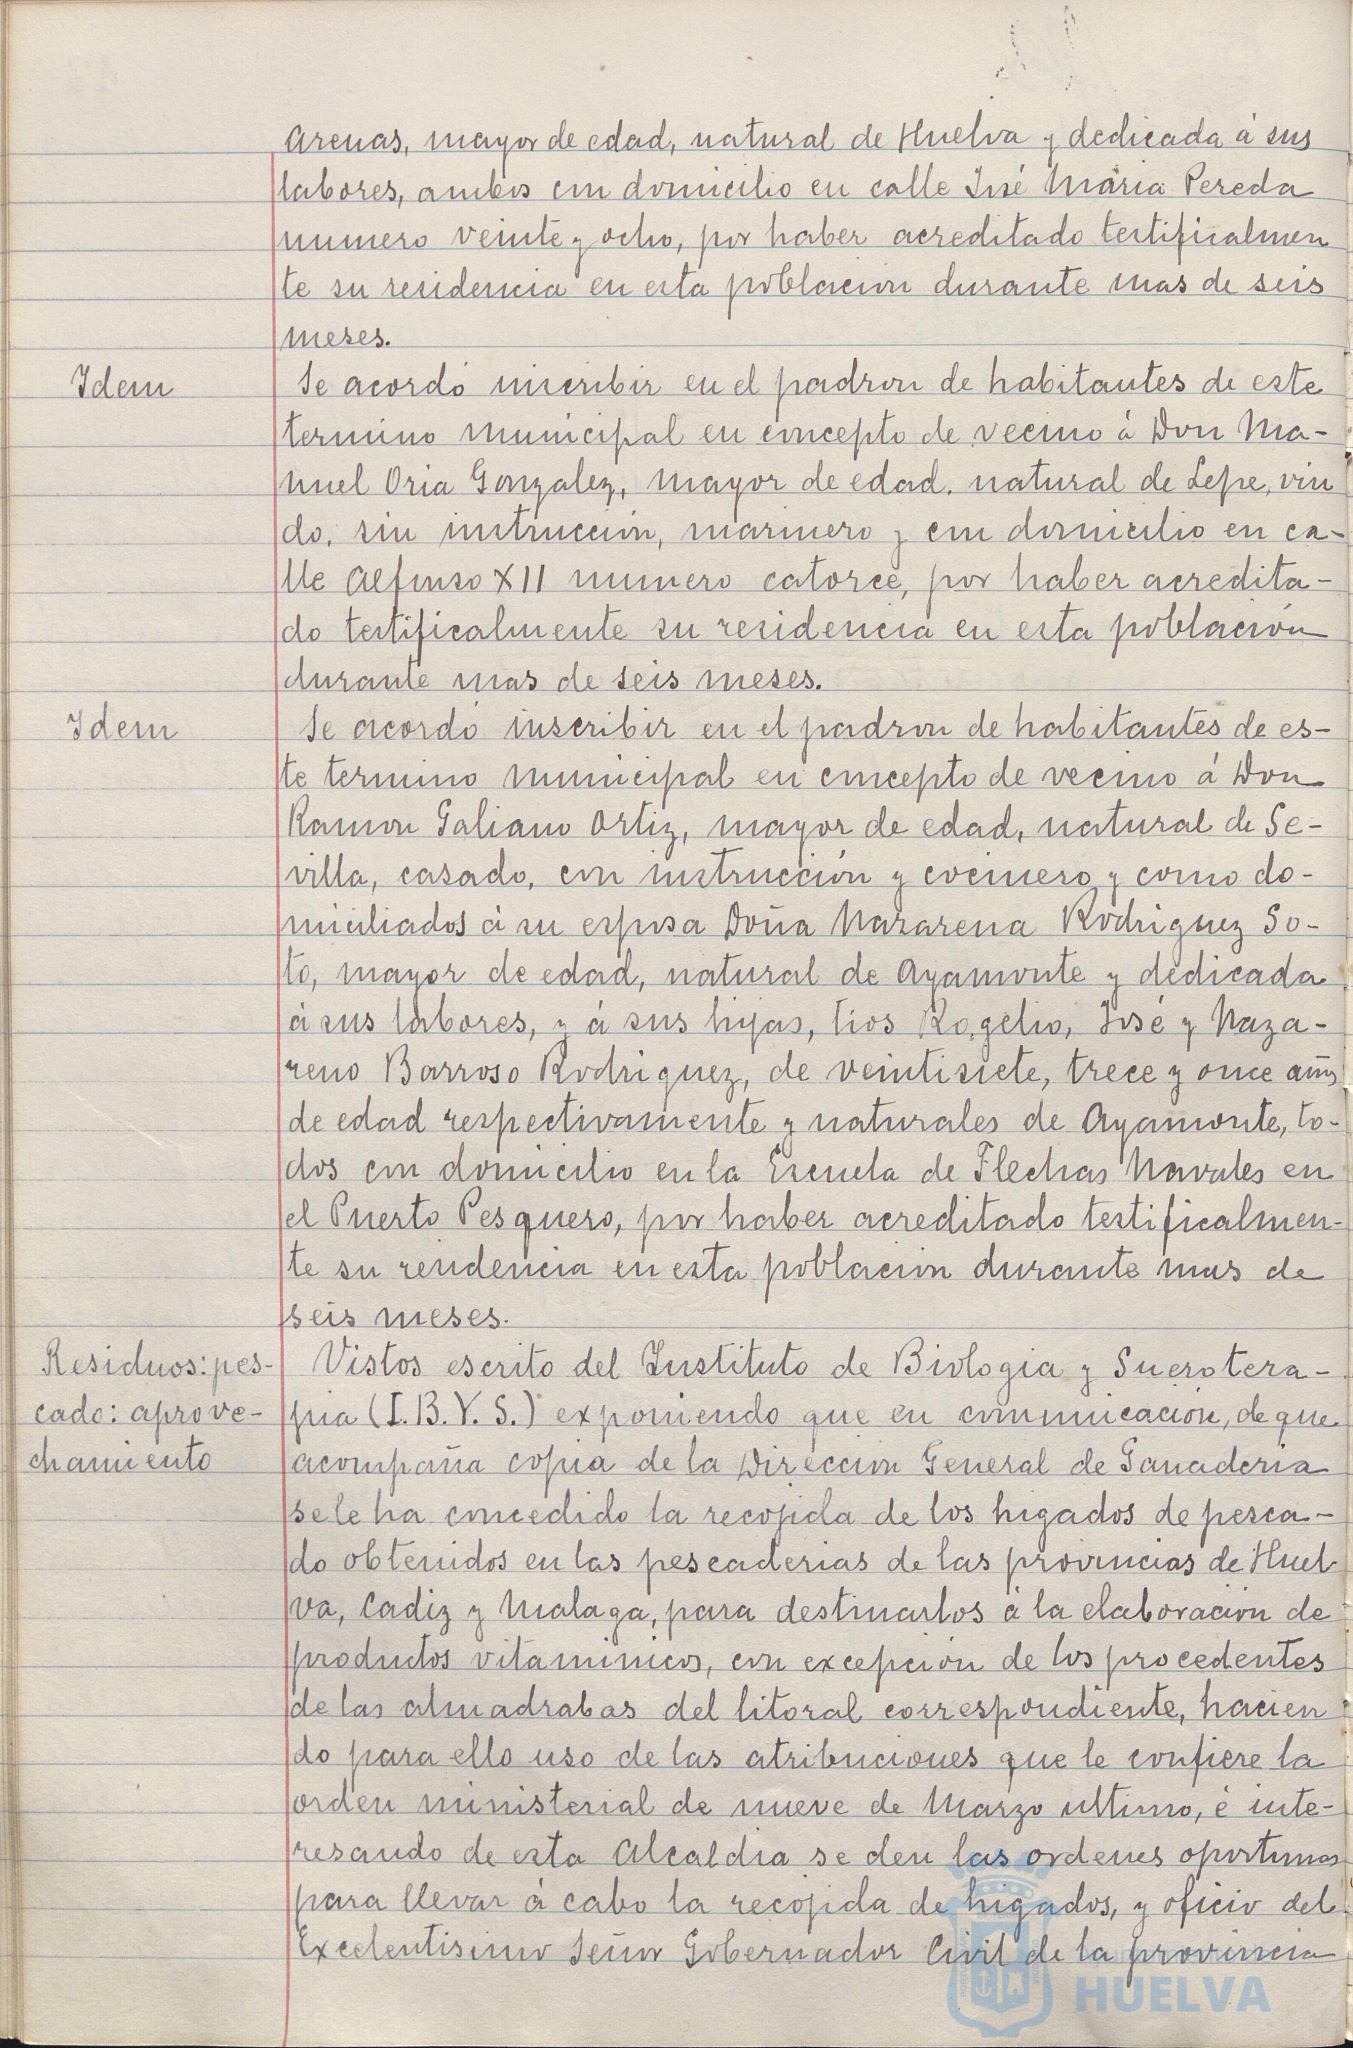 Arenas, mayor de edad, natural de Huelva y dedicada á sus
labores, ambos con domicilio en calle José Maria Pereda
numero veinte y ocho, por haber acreditado testificalmen
te su residencia en esta poblacion durante mas de seis
meses.
Idem
Se acordó inscribir en el padron de habitantes de este
termino municipal en concepto de vecino á Don Ma-
nuel Oria Gonzalez, mayor de edad, natural de Lepe, viu
do, sin instrucción, marinero y con domicilio en ca-
lle Alfonso XII numero catorce, por haber acredita-
do testificalmente su residencia en esta población
durante mas de seis meses.
Idem
Se acordó inscribir en el padron de habitantes de es-
te termino municipal en concepto de vecino á Don
Ramon Galiano Ortiz, mayor de edad, natural de Se-
villa, casado, con instrucción y cocinero y como do-
miciliados á su esposa Doña Nazarena Rodriguez So-
to, mayor de edad, natural de Ayamonte y dedicada
á sus labores, y á sus hijas, tios Rogelio, José y Naza-
reno Barroso Rodriguez, de veintisiete, trece y once años
de edad respectivamente y naturales de Ayamonte, to-
dos con domicilio en la Escuela de Flechas Navales en
el Puerto Pesquero, por haber acreditado testificalmen-
te su residencia en esta poblacion durante mas de
seis meses.
Residuos: pes-
cado: aprove-
chamiento
Vistos escrito del Instituto de Biologia y Suerotera-
pia (I.B.Y.S.) exponiendo que en comunicación, de que
acompaña copia de la Dirección General de Ganaderia
se le ha concedido la recojida de los higados de pesca-
do obtenidos en las pescaderias de las provincias de Huel-
va, Cadiz y Malaga, para destinarlos á la elaboración de
productos vitaminicos, con excepción de los procedentes
de las almadrabas del litoral correspondiente, hacien
do para ello uso de las atribuciones que le confiere la
orden ministerial de nueve de Marzo ultimo, é inte-
resando de esta Alcaldia se den las ordenes oportunas
para llevar á cabo la recojida de higados, y oficio del
Excelentisimo Señor Gobernador Civil de la provincia
HUELVA